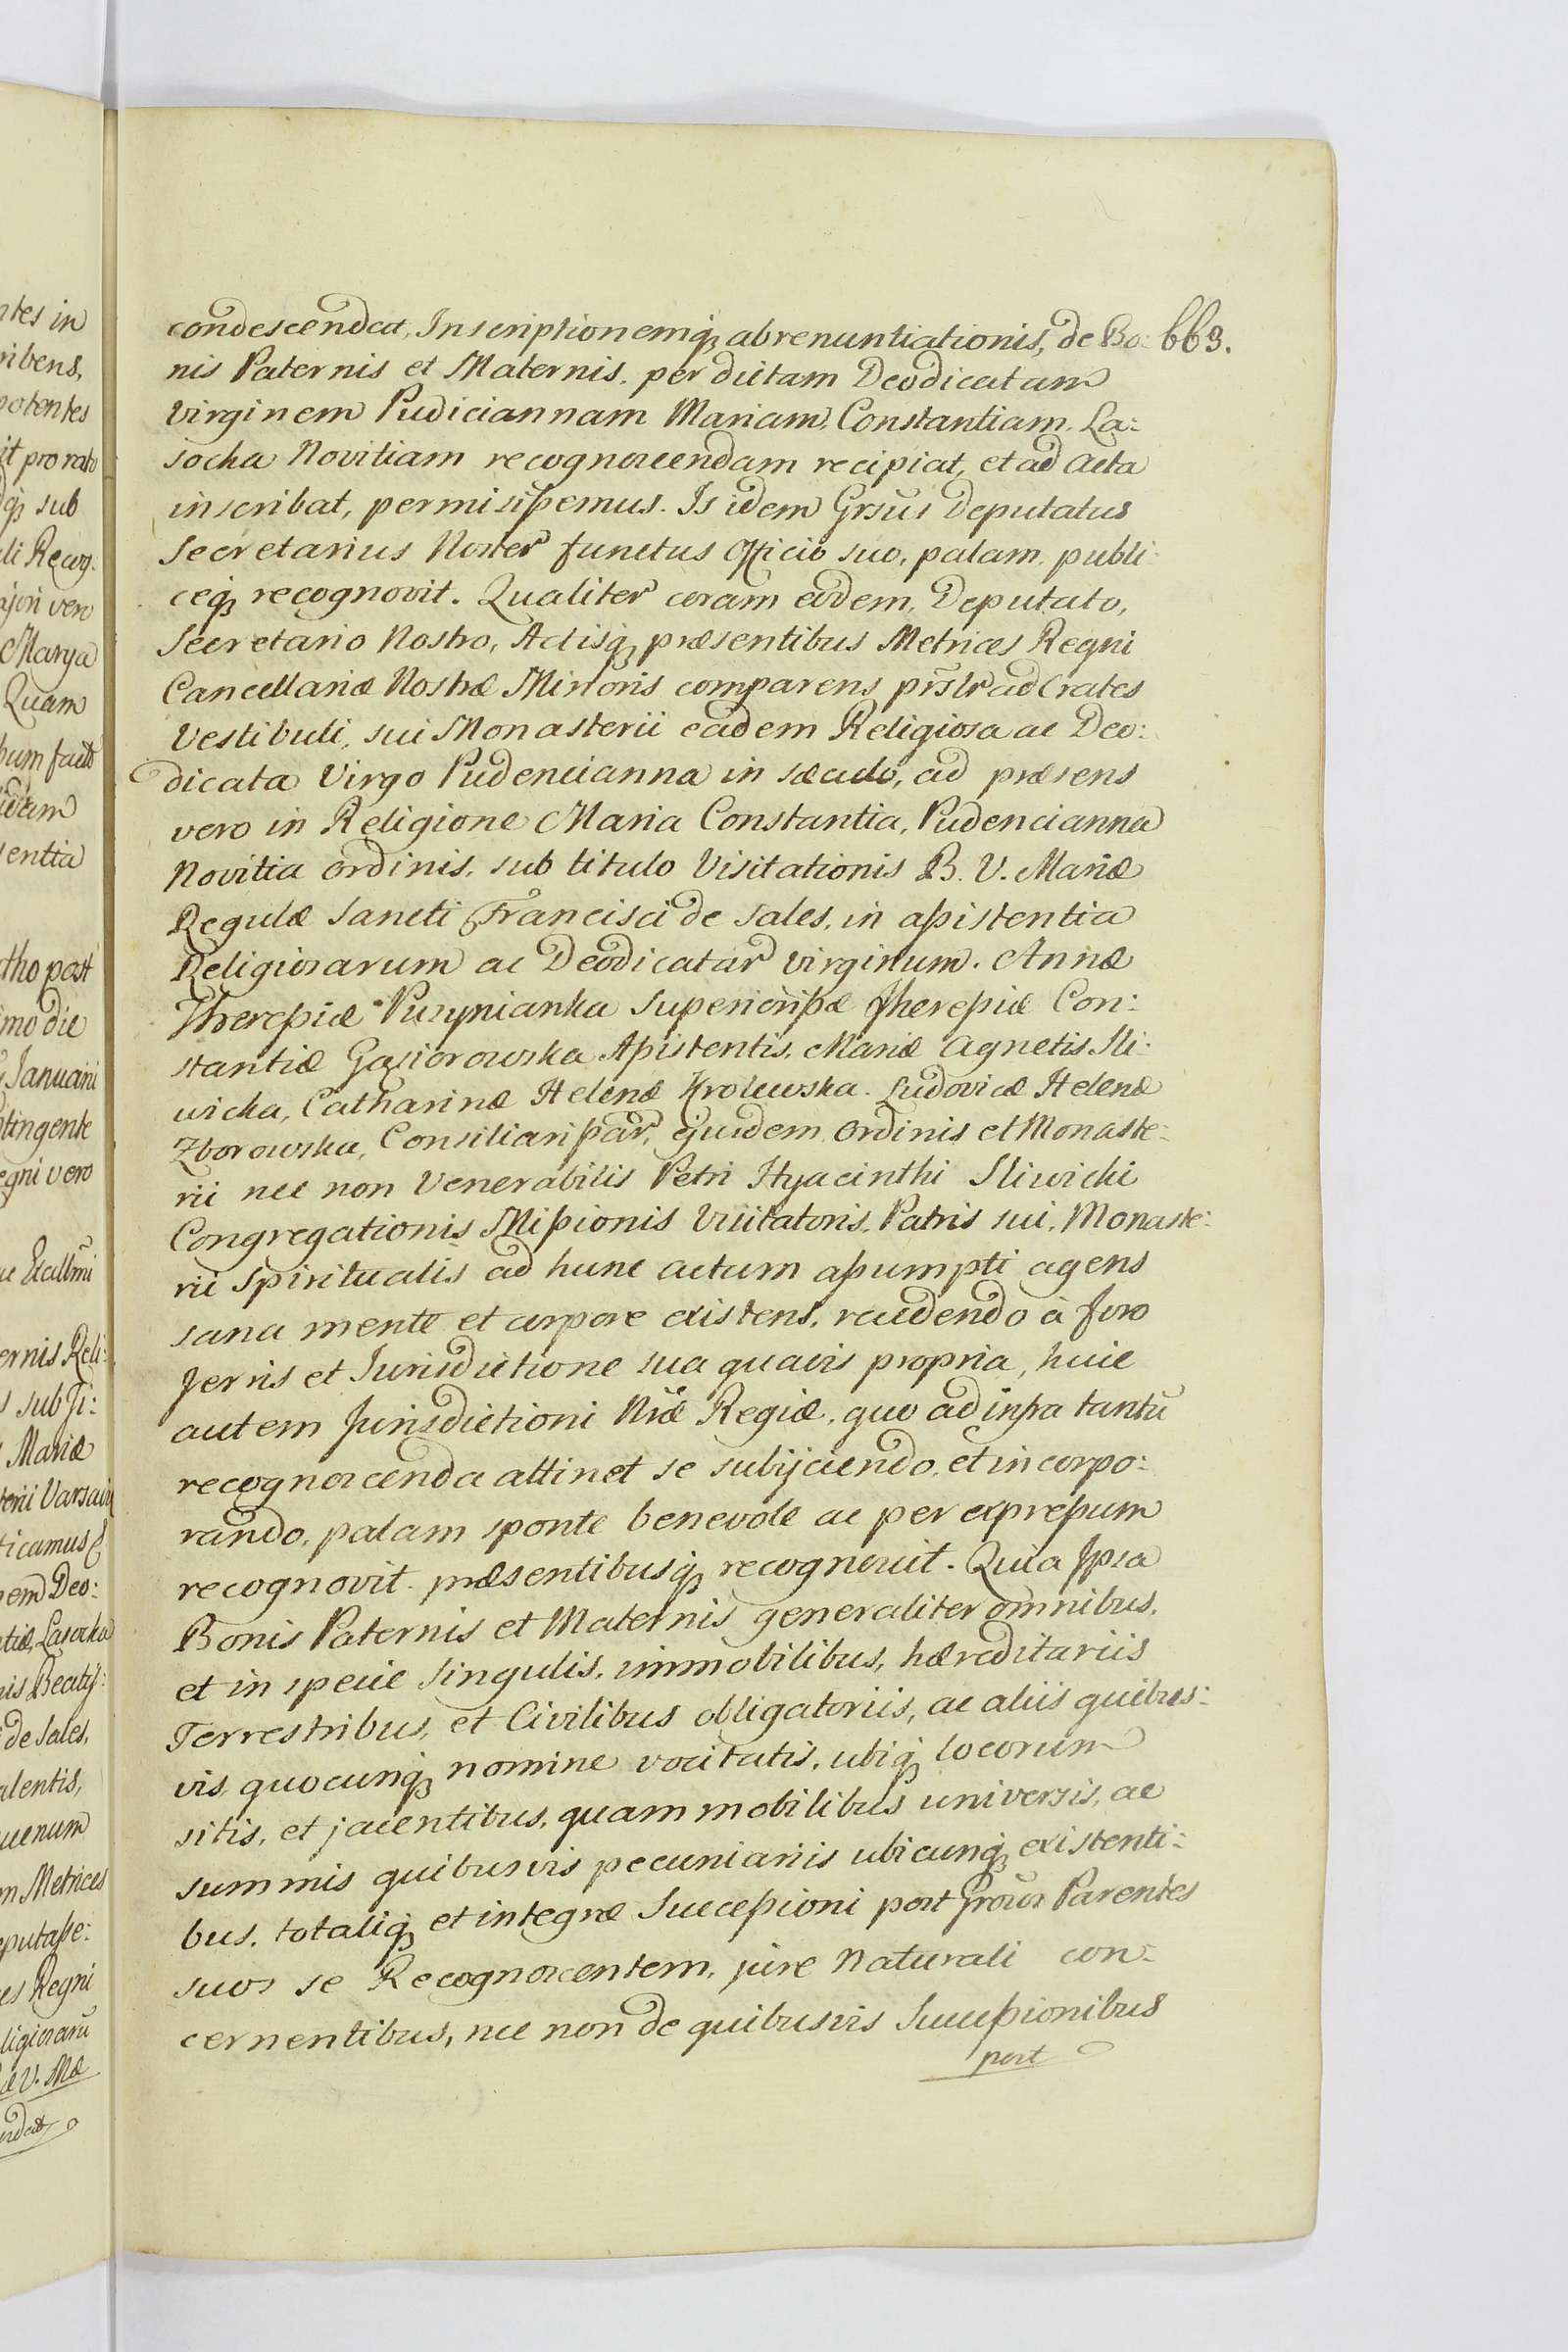 663.
condescendat, Inscriptionemq́ꝫ abrenuntiationis, de Bo:
nis Paternis et Maternis, per dictam Deodicatam
Virginem Pudiciannam Mariam, Constantiam, La:
socka Novitiam recognoscendam recipiat, et ad Acta
inscribat, permisißemus. Is idem Grsus Deputatus
Secretarius Noster functus Officio suo, palam, publi:
ceq́ꝫ recognovit. Qualiter coram eodem, Deputato,
Secretario Nostro, Actisq́ꝫ præsentibus Metrices Regni
Cancellariæ Nostræ Minoris comparens prsltr ad Crates
Vestibuli, sui Monasterii eadem Religiosa ac Deo:
dicata Virgo Pudencianna in sæculo, ad præsens
vero in Religione Maria Constantia, Pudencianna
Novitia Ordinis, sub titulo Visitationis B. V. Mariæ
Regulæ Sancti Francisci de Sales, in aßistentia
Religiosarum ac Deodicatar Virginum. Annæ
Thereßiæ Puzynianka Superiorißæ Thereßiæ Con:
stantiæ Gąsiorowska Aßistentis, Mariæ Agnetis Sli:
wicka, Catharinæ Helenæ Krolewska. Ludovicæ Helenæ
Zborowska, Consiliarißar, ejusdem Ordinis et Monaste:
rii nec non Venerabilis Petri Hyacinthi Sliwicki
Congregationis Mißionis Visitatoris, Patris sui, Monaste:
rii Spiritualis ad hunc actum aßumpti agens
sana mente et corpore existens, recedendo à foro
Terris et Jurisdictione sua quavis propria, huic
autem Jurisdictioni Nræ Regiæ, quo ad infra tantũ
recognoscenda attinet se subijciendo, et incorpo:
rando, palam sponte benevole ac per expreßum
recognovit præsentibusq́ꝫ recognovit. Quia Ipsa
Bonis Paternis et Maternis generaliter omnibus,
et in specie singulis, immobilibus, hæreditariis
Terrestribus, et Civilibus obligatoriis, ac aliis quibus:
vis, quocunq́ꝫ nomine vocitatis, ubiq́ꝫ locorum
sitis, et jacentibus, quam mobilibus universis, ac
summis quibusvis pecuniariis ubicunq́ꝫ existenti:
bus, totaliq́ꝫ et integræ Succeßioni post Grosos Parentes
suos se Recognoscentem, jure Naturali con:
cernentibus, nec non de quibusvis Succeßionibus
post